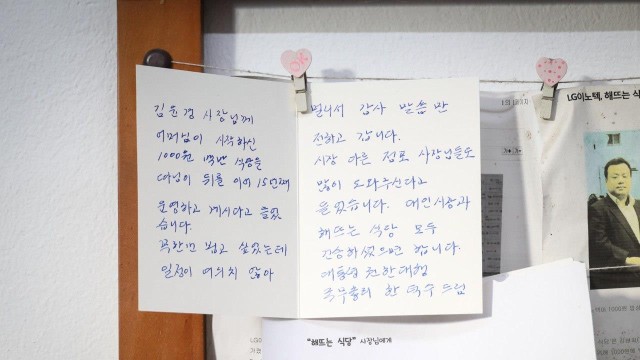 김윤경 사장님께
어머님이 시작하신
1000원 백반 식당을
따님이 뒤를 이어 15년째
운영하고 계시다고 들었
습니다.
꼭 한번 뵙고 싶었는데
일정이 여의치 않아
멀리서 감사 말씀만
전하고 갑니다.
시장 다른 점포 사장님들도
많이 도와주신다고
들었습니다. 대인시장과
해뜨는 식당 모두
번창하셨으면 합니다.
대통령 권한대행
국무총리 한덕수 드림
OK
LG이노텍, 해뜨는 식
"해뜨는 식당" 사장님에게